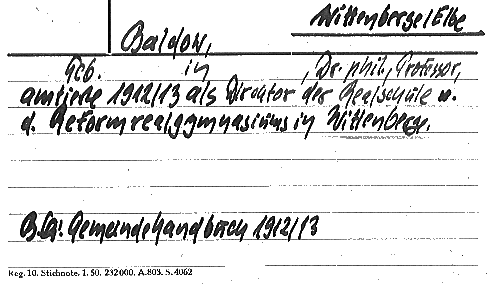 Wittenberge/Elbe
Baldow,
Geb. in , Dr. phil., Professor,
amtierte 1912/13 als Direktor der Realschule u.
d. Reformrealgymnasiums in Wittenberge.
B.G.: Gemeindehandbuch 1912/13
Reg. 10. Stichnote. 1. 50. 232000. A.803. S.4062